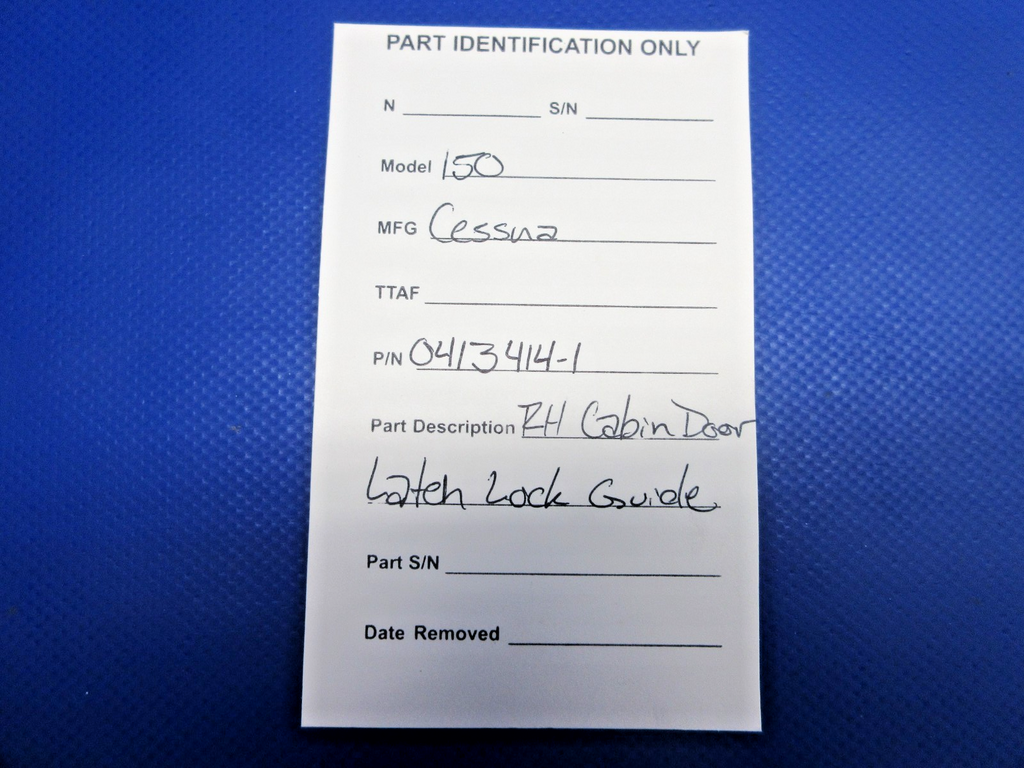 PART IDENTIFICATION ONLY
N S/N
Model 150
MFG Cessna
TTAF
P/N 0413414-1
Part Description RH Cabin Door
Latch Lock Guide
Part S/N
Date Removed